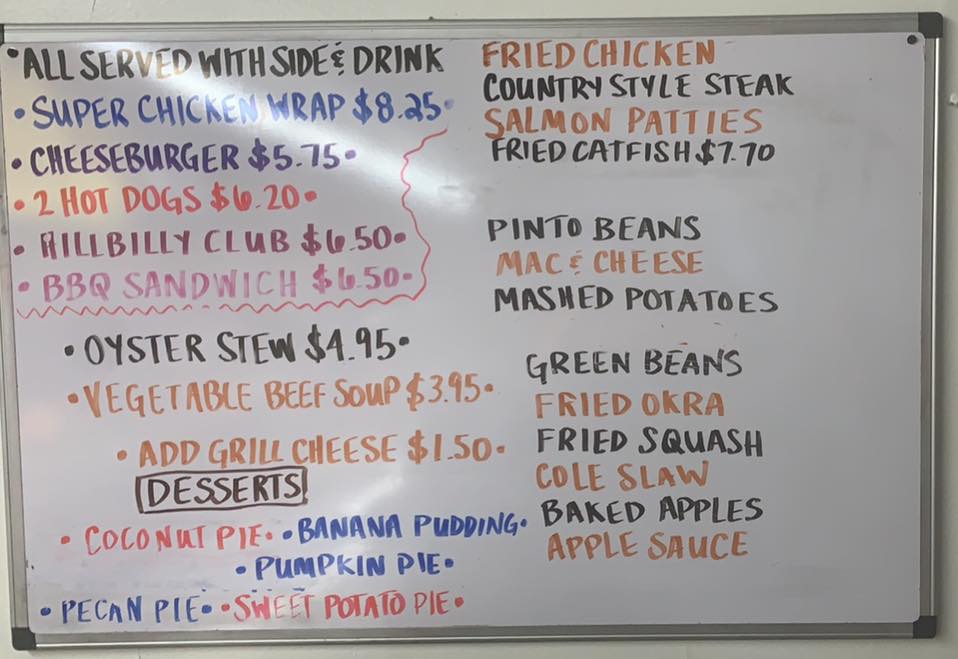 •ALL SERVED WITH SIDE & DRINK
•SUPER CHICKEN WRAP $8.25•
•CHEESEBURGER $5.75•
•2 HOT DOGS $6.20•
•HILLBILLY CLUB $6.50•
•BBQ SANDWICH $6.50•
•OYSTER STEW $4.95•
•VEGETABLE BEEF SOUP $3.95•
•ADD GRILL CHEESE $1.50•
DESSERTS
•COCONUT PIE• •BANANA PUDDING•
•PUMPKIN PIE•
•PECAN PIE• •SWEET POTATO PIE•
FRIED CHICKEN
COUNTRY STYLE STEAK
SALMON PATTIES
FRIED CATFISH $7.70
PINTO BEANS
MAC & CHEESE
MASHED POTATOES
GREEN BEANS
FRIED OKRA
FRIED SQUASH
COLE SLAW
BAKED APPLES
APPLE SAUCE